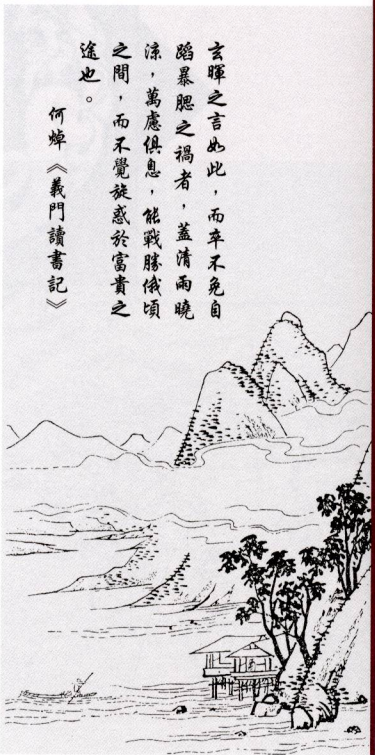 玄暉之言如此，而卒不免自
蹈暴腮之禍者，蓋清雨曉
涼，萬慮俱息，能戰勝俄頃
之間，而不覺旋惑於富貴之
途也。
何焯《義門讀書記》